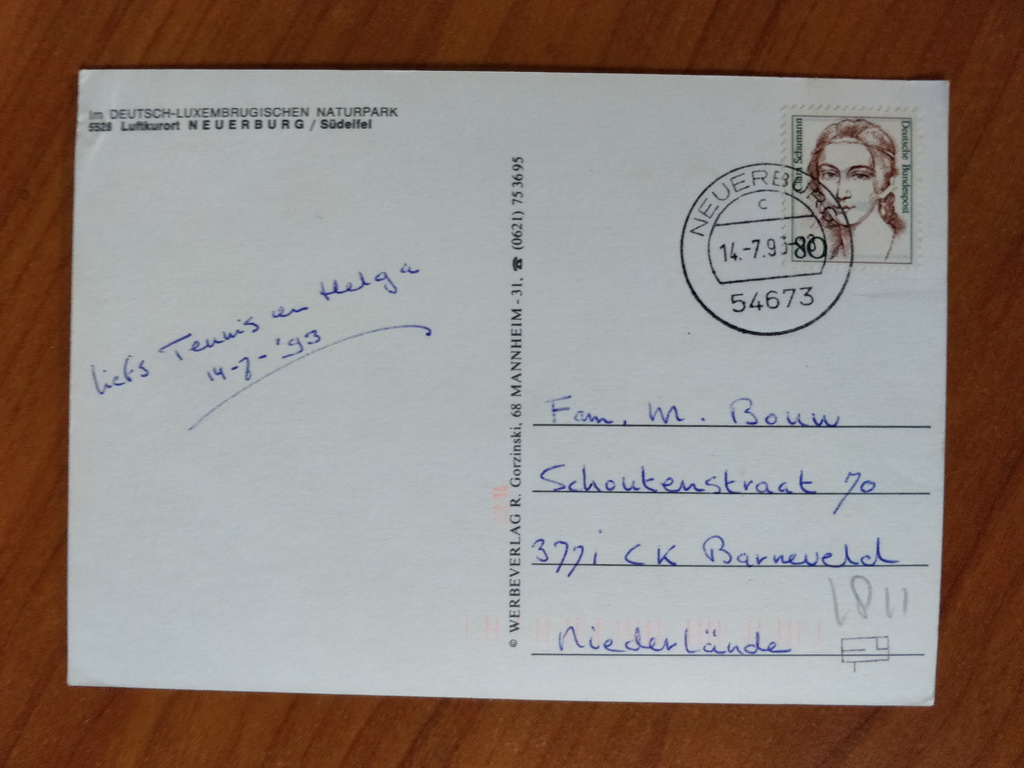 Im DEUTSCH-LUXEMBRUGISCHEN NATURPARK
5528 Luftkurort NEUERBURG / Südeifel
liefs Tennis en Helga
14-7-'93
© WERBEVERLAG R. Gorzinski, 68 MANNHEIM - 31, ☎ (0621) 75 36 95
Clara Schumann
Deutsche Bundespost
80
NEUERBURG
c
14.-7.93
54673
Fam. M. Bouw
Schoutenstraat 70
3771 CK Barneveld
Niederlände
1811